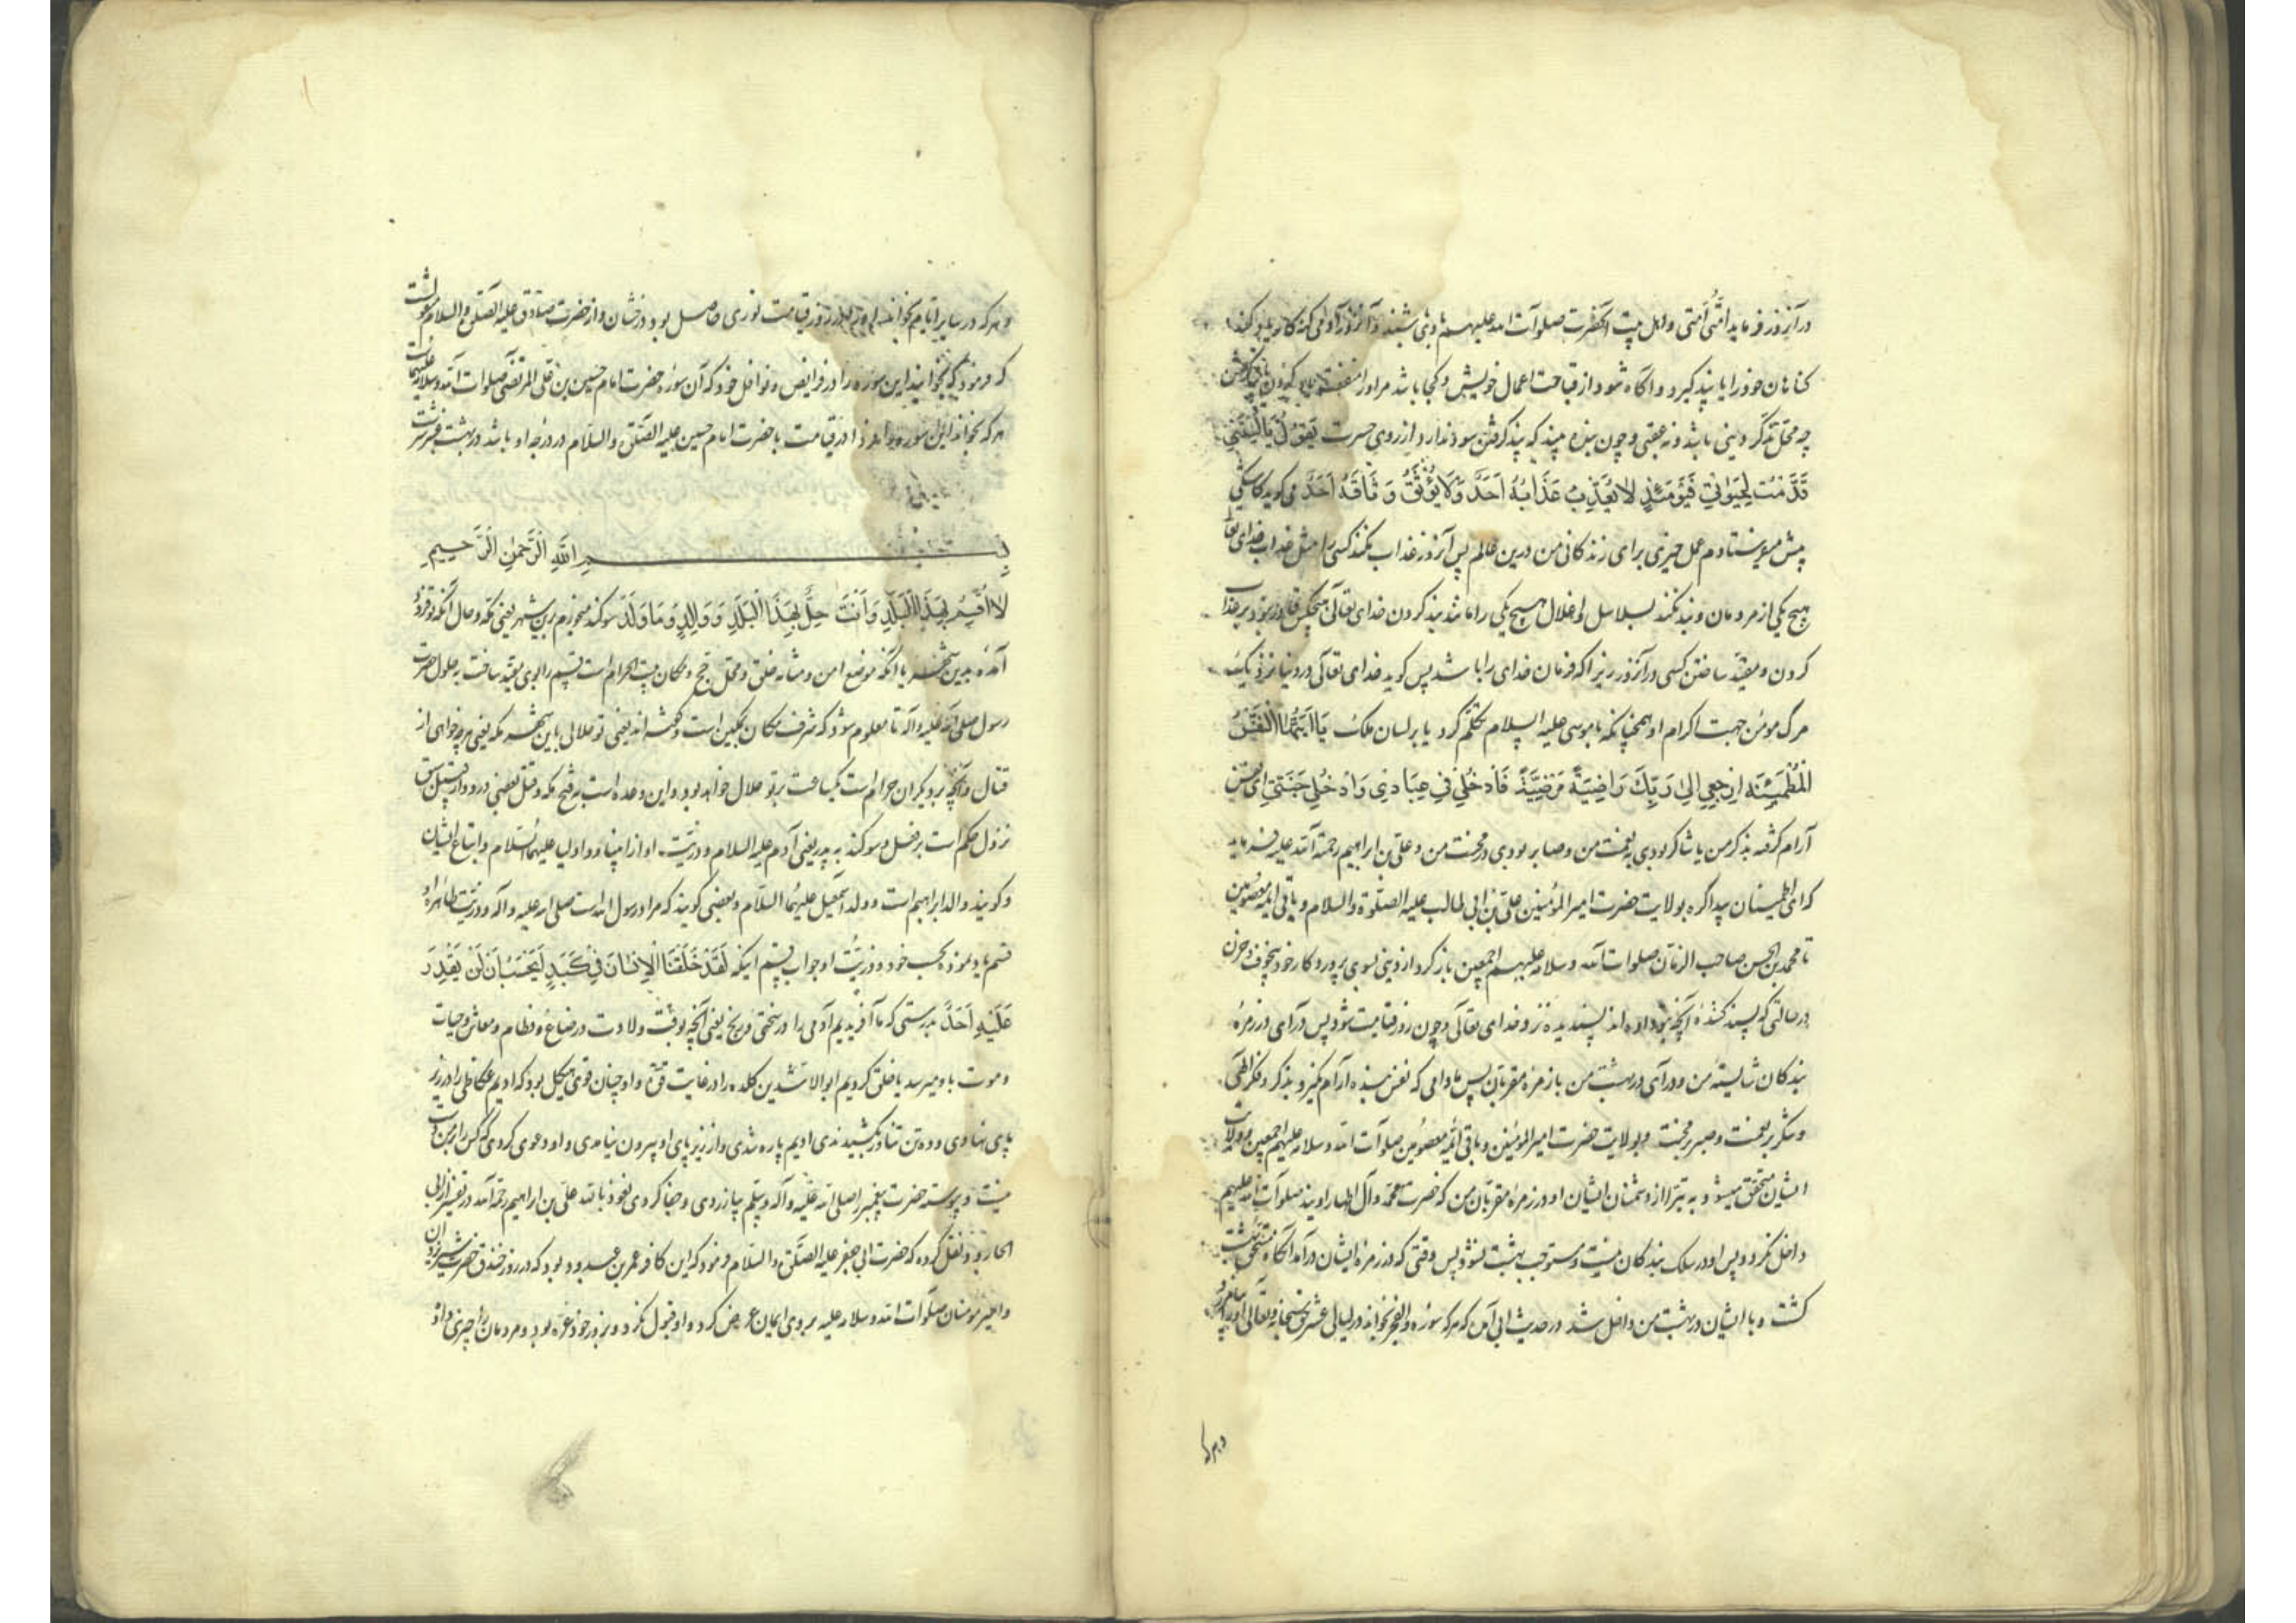 در آنروز فرماید امتی امتی و اهل بیت آنحضرت صلوات الله علیهم با وی باشند و آنروز آدمی که
کناهان خود را یاد پند کیرد و آکاه شود از قباحت اعمال خویش و کجا باشد مر او را منفعت
چه محل تذکر دنیی باشد و نه عقبی و چون بنده بیند که پند کرفتن سود ندارد از روی حسرت یَقُولُ یَا لَیْتَنِی
قَدَّمْتُ لِحَیَوٰتِی فَیَوْمَئِذٍ لَا یُعَذِّبُ عَذَابَهُ اَحَدٌ وَلَا یُوثِقُ وَثَاقَهُ اَحَدٌ می کوید کاشکی
پیش میفرستادم عمل خیری برای زندکانی من درین عالم پس آنروز عذاب نکند کسی را مثل عذاب خدای تعالی
هیچ یکی از مردمان و بند نکند بسلاسل و اغلال هیچ یکی را مانند بند کردن خدای تعالی هیچکس قادر نبود بر عذاب
کردن و مقید ساختن کسی در آنروز زیرا که فرمان خدای را باشد پس کوید خدای تعالی در دنیا نزدیک
مرک مومن جهت اکرام او همچنانکه با موسی علیه السلام تکلم کرد یا بر لسان ملک یَا اَیَّتُهَا النَّفْسُ
الْمُطْمَئِنَّة اِرْجِعِی اِلیٰ رَبِّکَ رَاضِیَةً مَرْضِیَّةً فَادْخُلِی فِی عِبَادِی وَادْخُلِی جَنَّتِی ای نفس
آرام کرفته بذکر من یا شاکر بودی به نعمت من و صابر بودی در محنت من و علی بن ابراهیم رحمة الله علیه فرماید
که ای اطمینان پیدا کرده بولایت حضرت امیر المؤمنین علی بن ابی طالب علیه الصلوة والسلام و باقی ائمه معصومین
تا محمد بن الحسن صاحب الزمان صلوات الله وسلامه علیهم اجمعین باز کرد از دنیی بسوی پروردکار خود بیخوف و حزن
در حالتی که پسند کننده آنچه بتو داده اند پسندیده نزد خدای تعالی و چون روز قیامت شود پس درآی در زمره
بندکان شایسته من و درآی در بهشت من با زمره مقربان پس مادامی که نفس بنده آرام نکیرد بذکر و فکر الهی
و شکر بر نعمت و صبر بر محنت و بولایت حضرت امیر المؤمنین و باقی ائمه معصومین صلوات الله وسلامه علیهم اجمعین و ولایت
ایشان متحقق میشود به تبرا از دشمنان ایشان او در زمره مقربان من که حضرت محمد و آل اطهار اویند صلوات الله علیهم
داخل نکردد پس او در سلک بندکان نیست و مستوجب بهشت نشود پس وقتی که در زمره ایشان درآمد آنکاه مستحق بهشت
کشت و با ایشان در بهشت من داخل شد در حدیث ابی آمده که هرکه سوره والفجر بخواند در لیالی عشر حق سبحانه و تعالی او را
و هرکه
و هرکه در سایر ایام بخواند او را در روز قیامت نوری حاصل بود درخشان و از حضرت صادق علیه الصلوة والسلام مرویست
که فرمود که بخوانید این سوره را در فرایض و نوافل خود که آن سوره حضرت امام حسین بن علی المرتضی صلوات الله وسلامه علیهما
هرکه بخواند این سوره را در قیامت با حضرت امام حسین علیه الصلوة والسلام در درجه او باشد در بهشت
بِسْمِ اللّٰهِ الرَّحْمٰنِ الرَّحِیمِ
لَا اُقْسِمُ بِهٰذَا الْبَلَدِ وَاَنْتَ حِلٌّ بِهٰذَا الْبَلَدِ وَوَالِدٍ وَمَا وَلَدَ سوکند میخورم بدین شهر یعنی مکه و حال آنکه تو فرود
آمده بدین شهر با آنکه موضع امن و مثابه خلق و محل حج و مکان بیت الحرام است قسم را بوی مقید ساخت به حلول حضرت
رسول صلی الله علیه وآله تا معلوم شود که شرف مکان بمکین است و کفته اند یعنی تو حلالی باین شهر مکه یعنی هرچه خواهی از
قتال و آنچه بر دیکران حرام است یکساعت بر تو حلال خواهد بود و این وعده است به فتح مکه و قتل بعضی درو و از قبیل سبق
نزول حکم است بر فعل و سوکند به پدر یعنی آدم علیه السلام و ذریت او از انبیا و اولیا علیهم السلام و اتباع ایشان
و کویند والد ابراهیم است و ولد اسمعیل علیهما السلام و بعضی کویند که مراد رسول الله است صلی الله علیه وآله و ذریت طاهره او
قسم یاد نموده بحب خود و ذریت او جواب قسم اینکه لَقَدْ خَلَقْنَا الْاِنْسَانَ فِی کَبَدٍ اَیَحْسَبُ اَنْ لَنْ یَقْدِرَ
عَلَیْهِ اَحَدٌ بدرستی که ما آفریدیم آدمی را در سختی و رنج یعنی آنچه بوقت ولادت و رضاع و فطام و معاش و حیات
و موت باو میرسد یا خلق کردیم ابوالاشدین کلده را در غایت قوة و او چنان قوی هیکل بود که ادیم عکاظی را در زیر
پای نهادی و ده تن تناور بکشیدندی ادیم پاره شدی و از زیر پای او بیرون نیامدی و او دعوی کردی که کس را بر من
نیست و پیوسته حضرت پیغمبر را صلی الله علیه وآله وسلم بیازردی و جفا کردی نعوذ بالله علی بن ابراهیم رحمه الله در تفسیر از ابی
الجارود نقل کرده که حضرت ابی جعفر علیه الصلوة والسلام فرمود که این کافر عمر بن عبدود بود که در روز خندق حضرت شیر یزدان
و امیر مومنان صلوات الله وسلامه علیه بر وی ایمان عرض کرد و او قبول نکرد و بزور خود غره بود و مردمان را چیزی داد